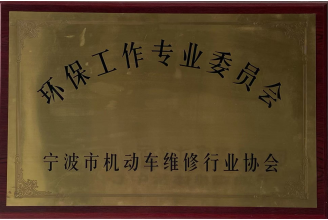 环保工作专业委员会
宁波市机动车维修行业协会